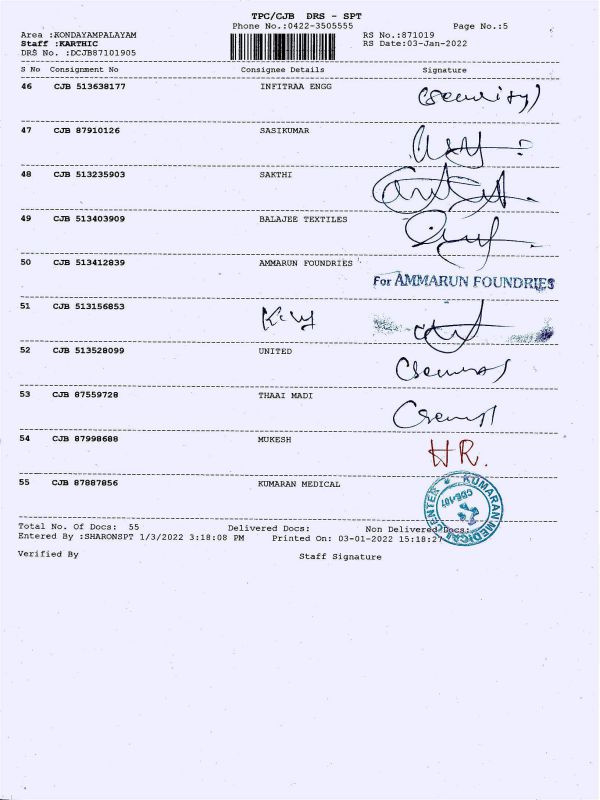 TPC/CJB DRS - SPT
Phone No.:0422-3505555 Page No.:5
Area :KONDAYAMPALAYAM RS No.:871019
Staff :KARTHIC RS Date:03-Jan-2022
DRS No. :DCJB87101905
S No Consignment No Consignee Details Signature
46 CJB 513638177 INFITRAA ENGG (Security)
47 CJB 87910126 SASIKUMAR
48 CJB 513235903 SAKTHI
49 CJB 513403909 BALAJEE TEXTILES
50 CJB 513412839 AMMARUN FOUNDRIES
For AMMARUN FOUNDRIES
51 CJB 513156853
52 CJB 513528099 UNITED
53 CJB 87559728 THAAI MADI
54 CJB 87998688 MUKESH HR.
55 CJB 87887856 KUMARAN MEDICAL
KUMARAN MEDICAL CENTER
CBE-107
Total No. Of Docs: 55 Delivered Docs: Non Delivered Docs:
Entered By :SHARONSPT 1/3/2022 3:18:08 PM Printed On: 03-01-2022 15:18:27
Verified By Staff Signature